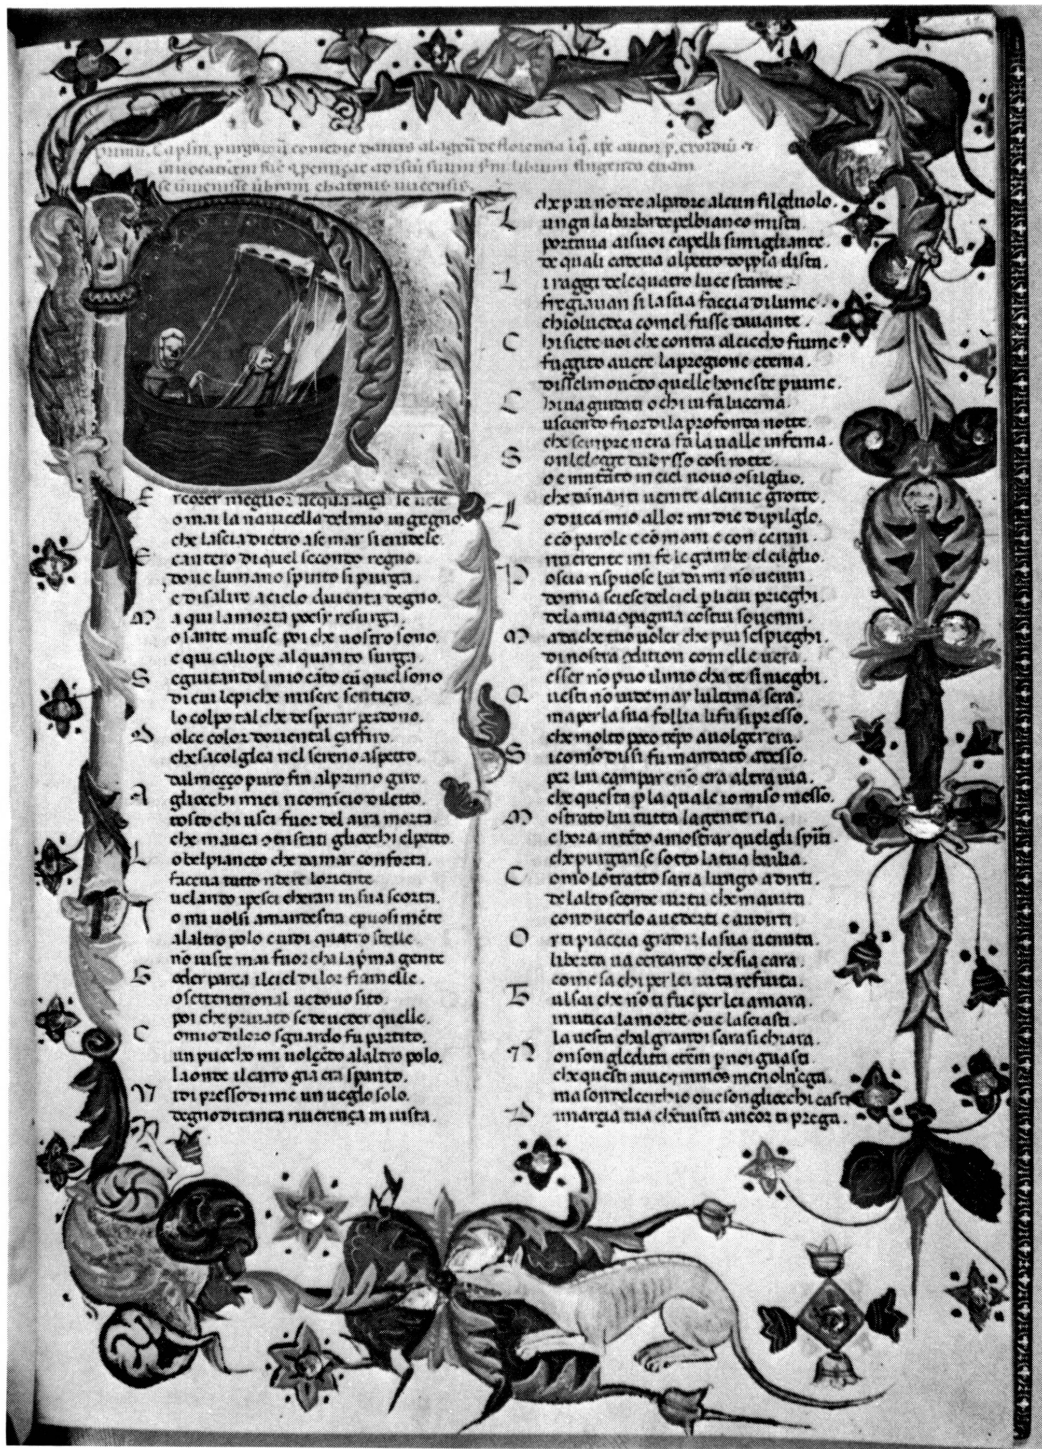 comedie dantis
invocationem
se invenisse
P
E r correr meglior acqua alça le vele
o mai la navicella del mio ingegno
che lascia dietro a se mar si crudele.
E cantero di quel secondo regno.
dove lumano spirito si purga.
e di salire a cielo diventa degno.
M a qui la morta poesy resurga.
o sante muse poi che vostro sono.
e qui caliope alquanto surga.
S eguitandol mio cāto cū quel sono
di cui le piche misere sentiero.
lo colpo tal che desperar perdono.
D olce color doriental çaffiro.
che sacolglea nel sereno aspetto.
dal meçço puro fin al primo giro.
A gliocchi miei ricomicio diletto.
tosto chi usci fuor del aura morta.
che mavea otristati gliocchi elpetto.
L o bel pianeto che damar conforta.
faceva tutto ridere loriente
velando ipesci cheran in sua scorta.
o mi volsi amandestra epuosi mēte
alaltro polo evidi quatro stelle.
nō viste mai fuor cha lap̄ma gente
G oder parea ilciel di lor fiamelle.
o settentrional vedovo sito.
poi che privato se de veder quelle.
C omio diloro sguardo fu partito.
un pucho mi volgēto alaltro polo.
la onde ilcarro gia era sparito.
V idi presso di me un veglo solo.
degno di tanta riverença in vista.
che piu nō dee alpadre alcun filgluolo.
L unga la barba e depelbianco mista
portava aisuoi capelli simigliante.
de quali cadeva alpetto doppia lista.
I i raggi delequatro luce sante.
fregiavan si la sua faccia dilume.
chiolvedea comel fusse davante.
C hi siete voi che contra alcieco fiume
fuggito avete la pregione eterna.
disselmovēdo quelle honeste piume.
C hiva guidati o chi vi fu lucerna.
usciendo fuor dila profonda notte.
che sempre nera fa la valle inferna.
S on le legge dabysso cosi rotte.
o e mutato in ciel novo cōsilglio.
che dannati venite alemie grotte.
L o duca mio allor mi die dipilglo.
e cō parole e cō mani e con cenni.
riverente mi fe le gambe elcilglio.
P oscia rispuose lui da mi nō venni.
donna sciese delciel p licui prieghi.
dela mia compagnia costui sovenni.
M ada che tuo voler che piu sespieghi.
di nostra condition comelle vera.
esser nō puo ilmio cha te si nieghi.
Q uesti nō vide mai lultima sera.
ma per la sua follia lifu si presso.
che molto poco tēpo avolger era.
S i comio dissi fui mandato adesso.
per lui campar e nō era altra via.
che questa p la quale io miso messo.
M ostrato lui tutta la gente ria.
e hora intēdo amostrar quegli spiriti.
che purganse sotto la tua bailia.
C omio lo tratto saria lungo a dirti.
de lalto scende virtu che mavita
conducerlo avederti e audirti.
O r ti piaccia gradir la sua venuta.
liberta va cercando che si a cara.
come sa chi per lei vita refuita.
T ulsai che nō ti fue per lei amara.
in utica la morte ove lasciasti.
la vesta chalgrandi sara si chiara.
N on son gleditti eterni p noi guasti
che questi vive e minos me nolega.
ma son delcerchio ove son gliocchi casti
D i marçia tua chen vista ancor ti prega.